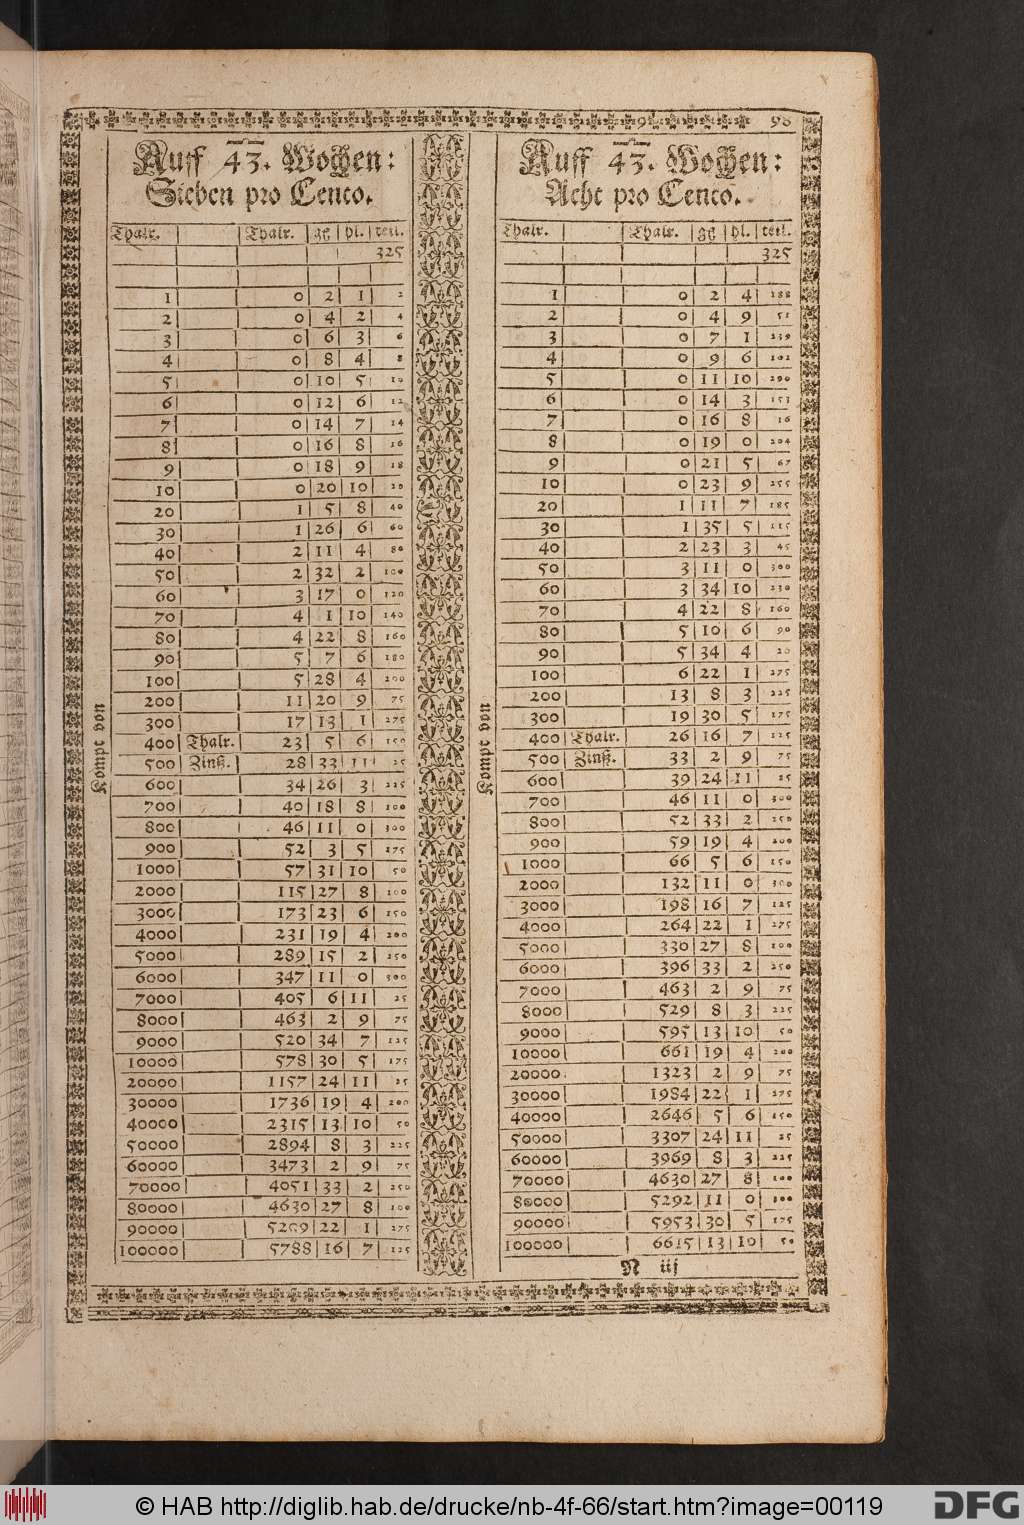 98
Auff 43. Wochen:
Sieben pro Cento.
Thalr. Thalr. gß hl. teil.
325
1 0 2 1 2
2 0 4 2 4
3 0 6 3 6
4 0 8 4 8
5 0 10 5 10
6 0 12 6 12
7 0 14 7 14
8 0 16 8 16
9 0 18 9 18
10 0 20 10 20
20 1 5 8 40
30 1 26 6 60
40 2 11 4 80
50 2 32 2 100
60 3 17 0 120
70 4 1 10 140
80 4 22 8 160
90 5 7 6 180
100 5 28 4 200
200 11 20 9 75
300 17 13 1 275
400 Thalr. 23 5 6 150
500 Zinß. 28 33 11 25
600 34 26 3 225
700 40 18 8 100
800 46 11 0 300
900 52 3 5 175
1000 57 31 10 50
2000 115 27 8 100
3000 173 23 6 150
4000 231 19 4 200
5000 289 15 2 250
6000 347 11 0 300
7000 405 6 11 25
8000 463 2 9 75
9000 520 34 7 125
10000 578 30 5 175
20000 1157 24 11 25
30000 1736 19 4 200
40000 2315 13 10 50
50000 2894 8 3 225
60000 3473 2 9 75
70000 4051 33 2 250
80000 4630 27 8 100
90000 5209 22 1 275
100000 5788 16 7 125
Kompt von
Auff 43. Wochen:
Acht pro Cento.
Thalr. Thalr. gß hl. teil.
325
1 0 2 4 188
2 0 4 9 51
3 0 7 1 239
4 0 9 6 102
5 0 11 10 290
6 0 14 3 153
7 0 16 8 16
8 0 19 0 204
9 0 21 5 67
10 0 23 9 255
20 1 11 7 185
30 1 35 5 115
40 2 23 3 45
50 3 11 0 300
60 3 34 10 230
70 4 22 8 160
80 5 10 6 90
90 5 34 4 20
100 6 22 1 275
200 13 8 3 225
300 19 30 5 175
400 Thalr. 26 16 7 125
500 Zinß. 33 2 9 75
600 39 24 11 25
700 46 11 0 300
800 52 33 2 250
900 59 19 4 200
1000 66 5 6 150
2000 132 11 0 300
3000 198 16 7 125
4000 264 22 1 275
5000 330 27 8 100
6000 396 33 2 250
7000 463 2 9 75
8000 529 8 3 225
9000 595 13 10 50
10000 661 19 4 200
20000 1323 2 9 75
30000 1984 22 1 275
40000 2646 5 6 150
50000 3307 24 11 25
60000 3969 8 3 225
70000 4630 27 8 100
80000 5292 11 0 300
90000 5953 30 5 175
100000 6615 13 10 50
Kompt von
N iij
© HAB http://diglib.hab.de/drucke/nb-4f-66/start.htm?image=00119
DFG